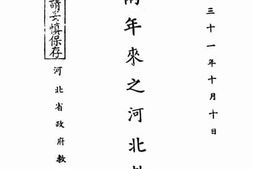 三十一年十月十日
兩年來之河北
請妥慎保存
河北省政府教